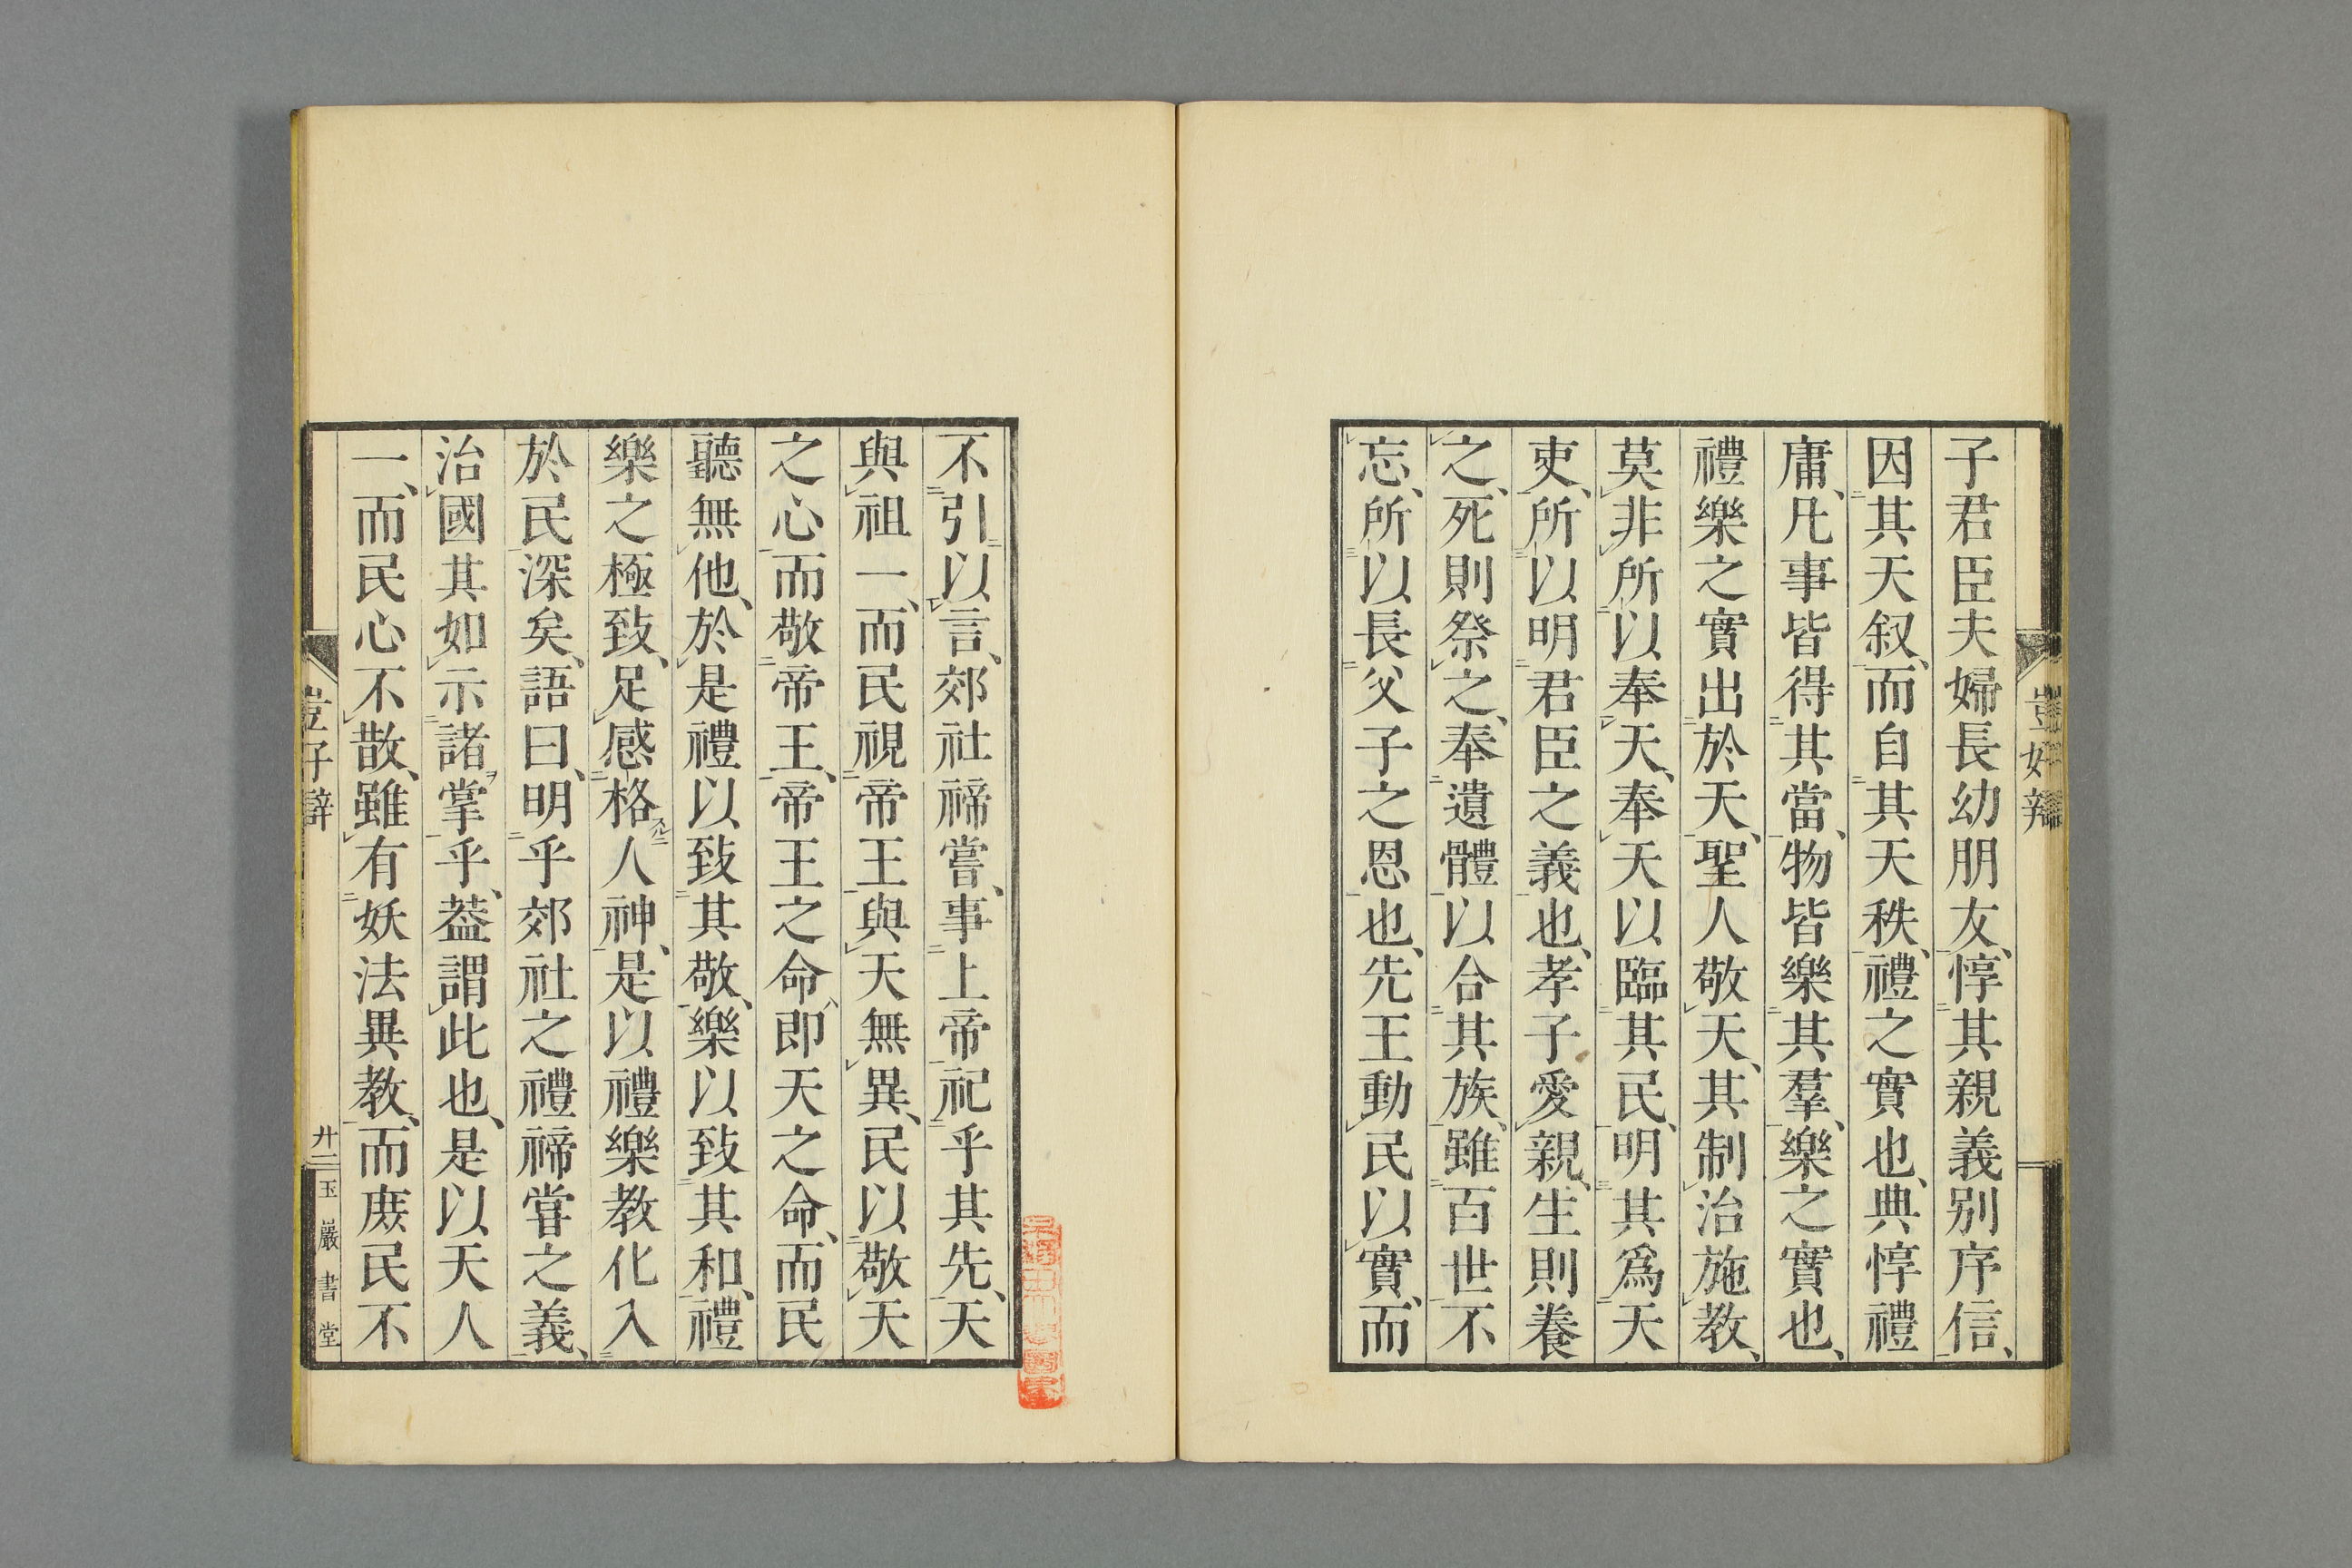 子君臣夫婦長幼朋友、惇其親義别序信、
因其天叙、而自其天秩、禮之實也、典惇禮
庸、凡事皆得其當、物皆樂其羣、樂之實也、
禮樂之實出於天、聖人敬天、其制治施教、
莫非所以奉天、奉天以臨其民、明其爲天
吏、所以明君臣之義也、孝子愛親、生則養
之、死則祭之、奉遺體以合其族、雖百世不
忘、所以長父子之恩也、先王動民以實、而
不引以言、郊社禘嘗、事上帝祀乎其先、天
與祖一、而民視帝王與天無異、民以敬天
之心而敬帝王、帝王之命即天之命、而民
聽無他、於是禮以致其敬、樂以致其和、禮
樂之極致、足感格人神、是以禮樂教化入
於民深矣、語曰、明乎郊社之禮禘嘗之義、
治國其如示諸掌乎、葢謂此也、是以天人
一、而民心不散、雖有妖法異教、而庶民不
廿二
玉巖書堂